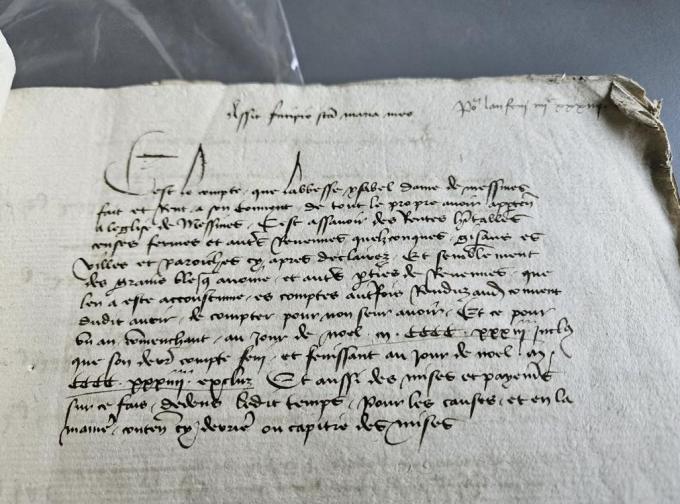 Assit principio sancta maria meo
Po' lan feni iiijc xxxiiij
Cest le compte que labbesse ysabel dame de messines
fait et Rent a son Convent de tout le propre avoir apptn
a leglise de Messines Cest assavoir des Rentes hitables
censes fermes et autres Revenues quelzconques gisans es
villes et paroiches cy apres declairez Et semblement
des grains bleis avoine et autres pties de Revenues que
len a este accoustume es comptes autreffois Renduz aud convent
dudit avoir de compter pour non seur avoir Et ce pour
un an comenchant au jour de noel m cccc xxxiij incluz
que son derr compte feni et fenissant au jour de noel m
cccc xxxiiij excluz Et aussi des mises et payemens
sur ce fais dedens ledit temps pour les causes et en la
maniere conten cy derriere ou capitre des mises